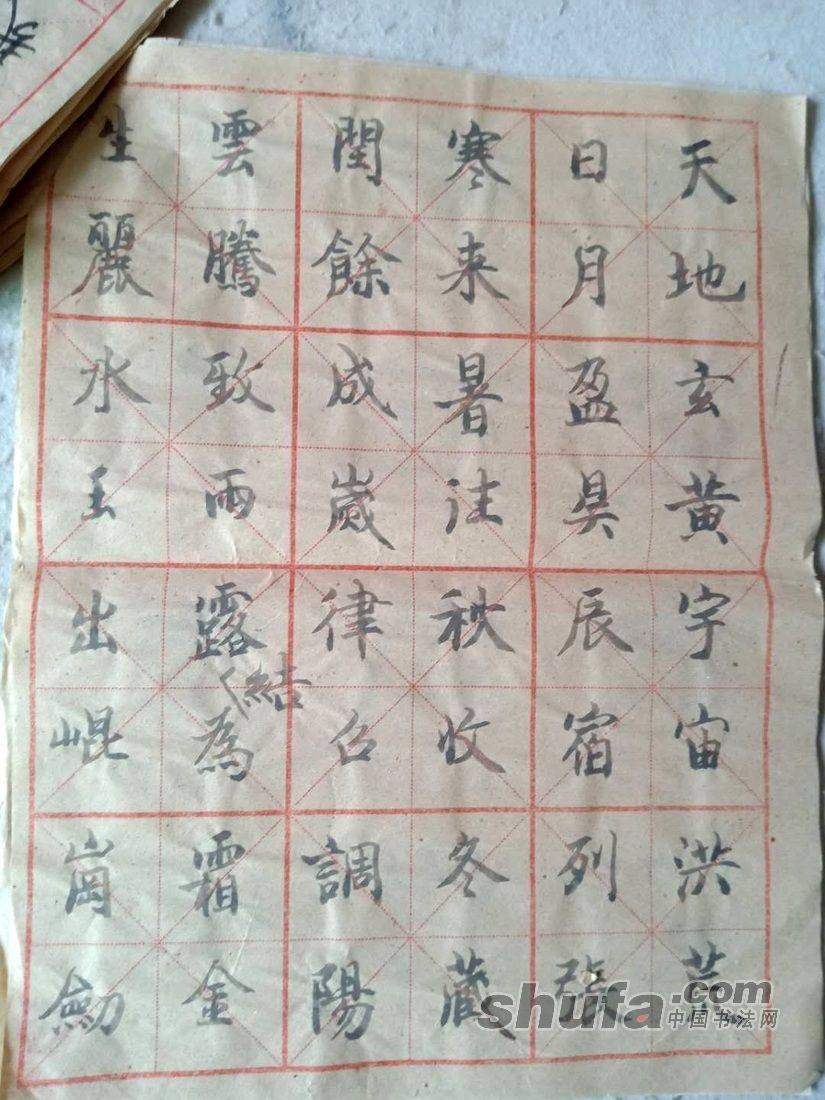 天地玄黄宇宙洪荒
日月盈昃辰宿列張
寒来暑往秋收冬藏
閏餘成歲律召調陽
雲騰致雨露結為霜金
生麗水玉出崐崗劍
shufa.com
中国书法网